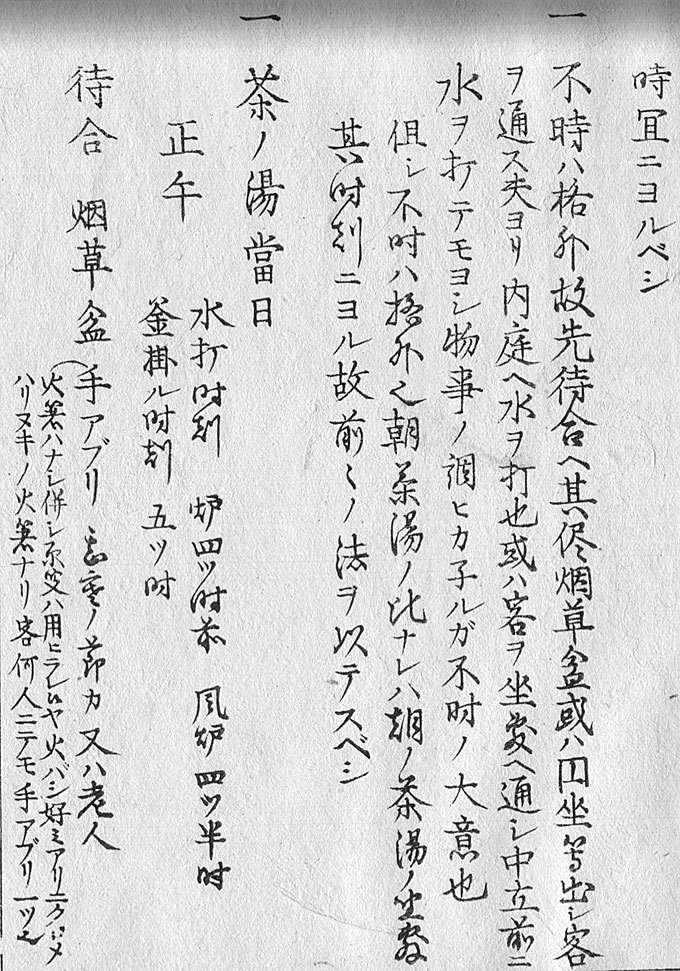 時冝ニヨルベシ
一 不時ハ格外故先待合ヘ其侭烟草盆或ハ円坐等出シ客
ヲ通ス夫ヨリ内庭ヘ水ヲ打也或ハ客ヲ坐敷ヘ通シ中立前ニ
水ヲ打テモヨシ物事ノ調ヒカ子ルガ不时ノ大意也
但シ不时ハ格外也朝茶湯ノ比ナレハ朝ノ茶湯ノ坐敷
其时刻ニヨル故前々ノ法ヲ以テスベシ
一 茶ノ湯當日
正午
水打时刻 炉四ツ时前 風炉四ツ半时
釜掛ル时刻 五ツ时
待合 烟草盆 手アブリ 寒ノ節カ又ハ老人
火箸ハナシ併シ宗 ハ用ヒラレ 火バシ好ミアリ
ハリヌキノ火箸ナリ客何人ニテモ手アブリ一ツ也